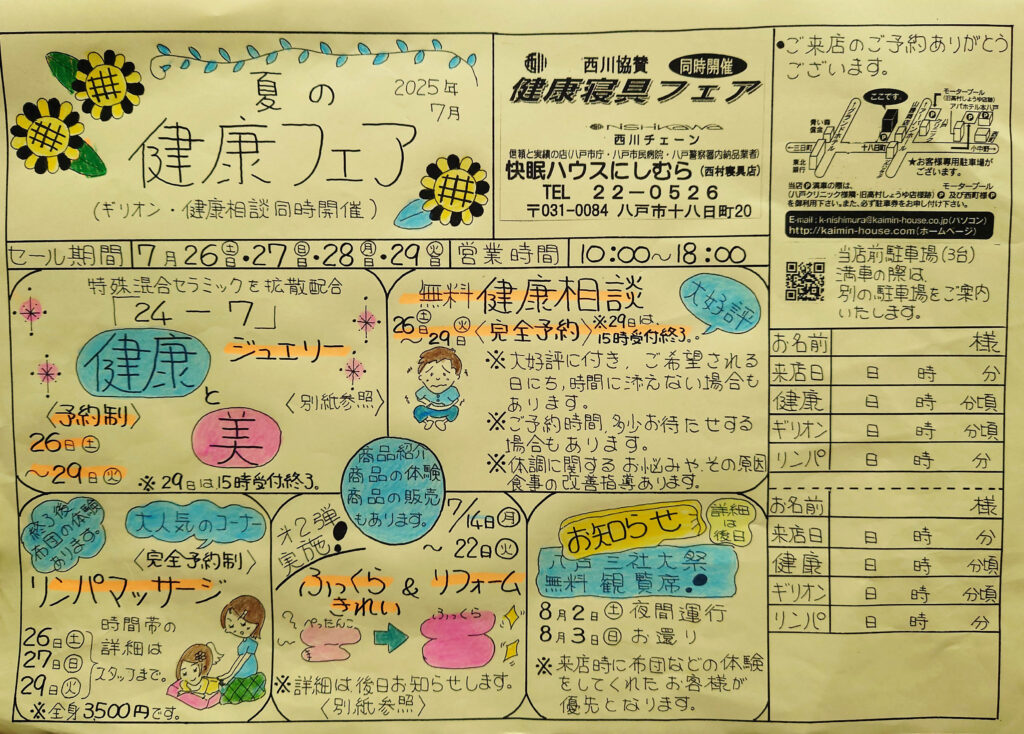 夏の
2025年
7月
健康フェア
(ギリオン・健康相談同時開催)
西川 西川協賛 同時開催
健康寝具フェア
nishikawa
西川チェーン
信頼と実績の店(八戸市庁・八戸市民病院・八戸警察署内納品業者)
快眠ハウスにしむら(西村寝具店)
TEL 22-0526
〒031-0084 八戸市十八日町20
•ご来店のご予約ありがとう
ございます。
ここです。
モータープール
(旧高村しょうゆ店跡)
アパホテル本八戸
青い森
信金
三日町
十八日町
小中野
東北
銀行
★お客様専用駐車場が
ございます。
当店P満車の際は、 モータープール
(八戸クリニック様隣・旧高村しょうゆ店様跡)P及び西町様P
を御利用下さい。また、必ず駐車券をお申し付け下さい。
E-mail:k-nishimura@kaimin-house.co.jp(パソコン)
http://kaimin-house.com(ホームページ)
当店前駐車場(3台)
満車の際は、
別の駐車場をご案内
いたします。
セール期間 7月26日土・27日日・28日月・29日火 営業時間 10:00～18:00
特殊混合セラミックを拡散配合
「24-7」
健康 ジュエリー
と
美
〈別紙参照〉
〈予約制〉
26日土
～29日火
※29日は15時受付終了。
無料 健康相談
大好評
26日土
～29日火〈完全予約〉※29日は、
15時受付終了。
※大好評に付き、ご希望される
日にち,時間に添えない場合も
あります。
※ご予約時間,多少お待たせする
場合もあります。
※体調に関するお悩みや、その原因
食事の改善指導あります。
商品紹介
商品の体験
商品の販売
もあります。
終了後
布団の体験
あります。
大人気のコーナー
〈完全予約制〉
リンパマッサージ
26日土
27日日
29日火
時間帯の
詳細は
スタッフまで。
※全身3,500円です。
オ2弾
実施!
7/14日月
～22日火
ふっくら & リフォーム
きれい
ぺったんこ
ふっくら
※詳細は後日お知らせします。
〈別紙参照〉
お知らせ
詳細
は
後日
八戸三社大祭
無料観覧席!
8月2日土夜間運行
8月3日日お還り
※来店時に布団などの体験
をしてくれたお客様が
優先となります。
お名前 様
来店日 日 時 分
健康 日 時 分頃
ギリオン 日 時 分頃
リンパ 日 時 分
お名前 様
来店日 日 時 分
健康 日 時 分頃
ギリオン 日 時 分頃
リンパ 日 時 分